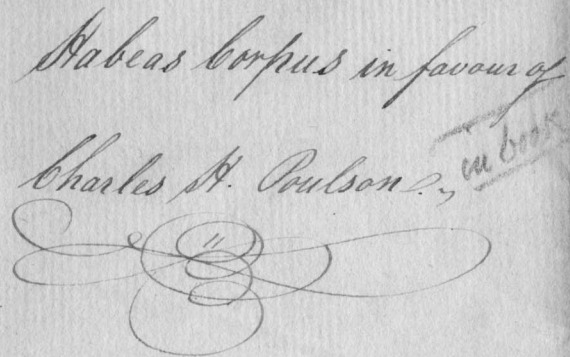 Habeas Corpus in favour of
Charles H. Poulson.
in book